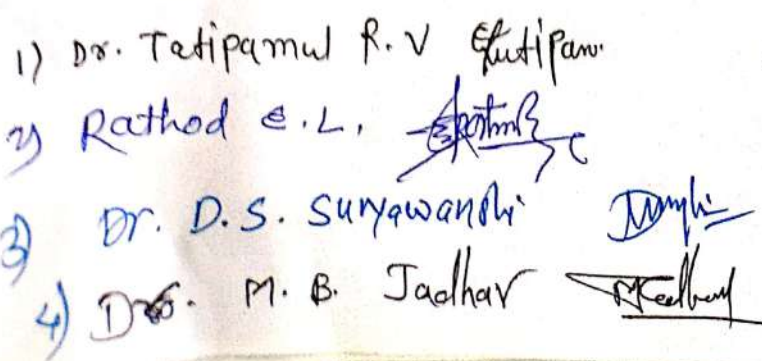 1) Dr. Tatipamul R. V
2) Rathod E. L.
3) Dr. D. S. Suryawanshi
4) Dr. M. B. Jadhav